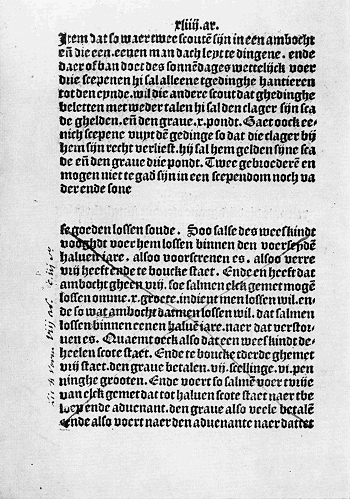 xliiij. ar.
Item dat so waer twee scoutē sijn in een ambocht
eñ die een. eenen man dach leyt te dingene. ende
daer of ban doet des sonnēdages wettelijck voer
die scepenen hi sal alleene tgedinghe hantieren
tot den eynde. wil die andere scout dat ghedinghe
beletten met wedertalen hi sal den clager sijn sca
de ghelden. eñ den graue. x. pondt. Gaet oock ee-
nich scepene vuyt dē gedinge so dat die clager bij
hem sijn recht verliest. hij sal hem gelden sijne sca
de eñ den graue viie pondt. Twee gebroederē en
mogen niet te gad sijn in een scependom noch va
der ende sone
se goeden lossen soude. Soo salse des wees kindt
vooghdt voer hem lossen binnen den voerseydē
haluen iare. alsoo voorscreuen es. alsoo verre
vrij heeft ende te boucke staet. Ende en heeft dat
ambocht gheen vrij. soe salmen elck gemet mogē
lossen omme. x. groete. indient men lossen wil. en-
de so wat ambocht datmen lossen wil. dat salmen
lossen binnen eenen haluē iare. naer dat verstor-
uen es. Quaemt oock also dat een wees kindt de-
heelen scote staet. Ende te boucke tderde ghemet
vrij staet. den graue betalen. vij. scellinge. vi. pen-
ninghe grooten. Ende voert so salmē voer tvrije
van elck gemet dat tot haluen scote staet naer tbe
loepende aduenant. den graue also veele betalē
ende also voert naer den aduenante naer dattet